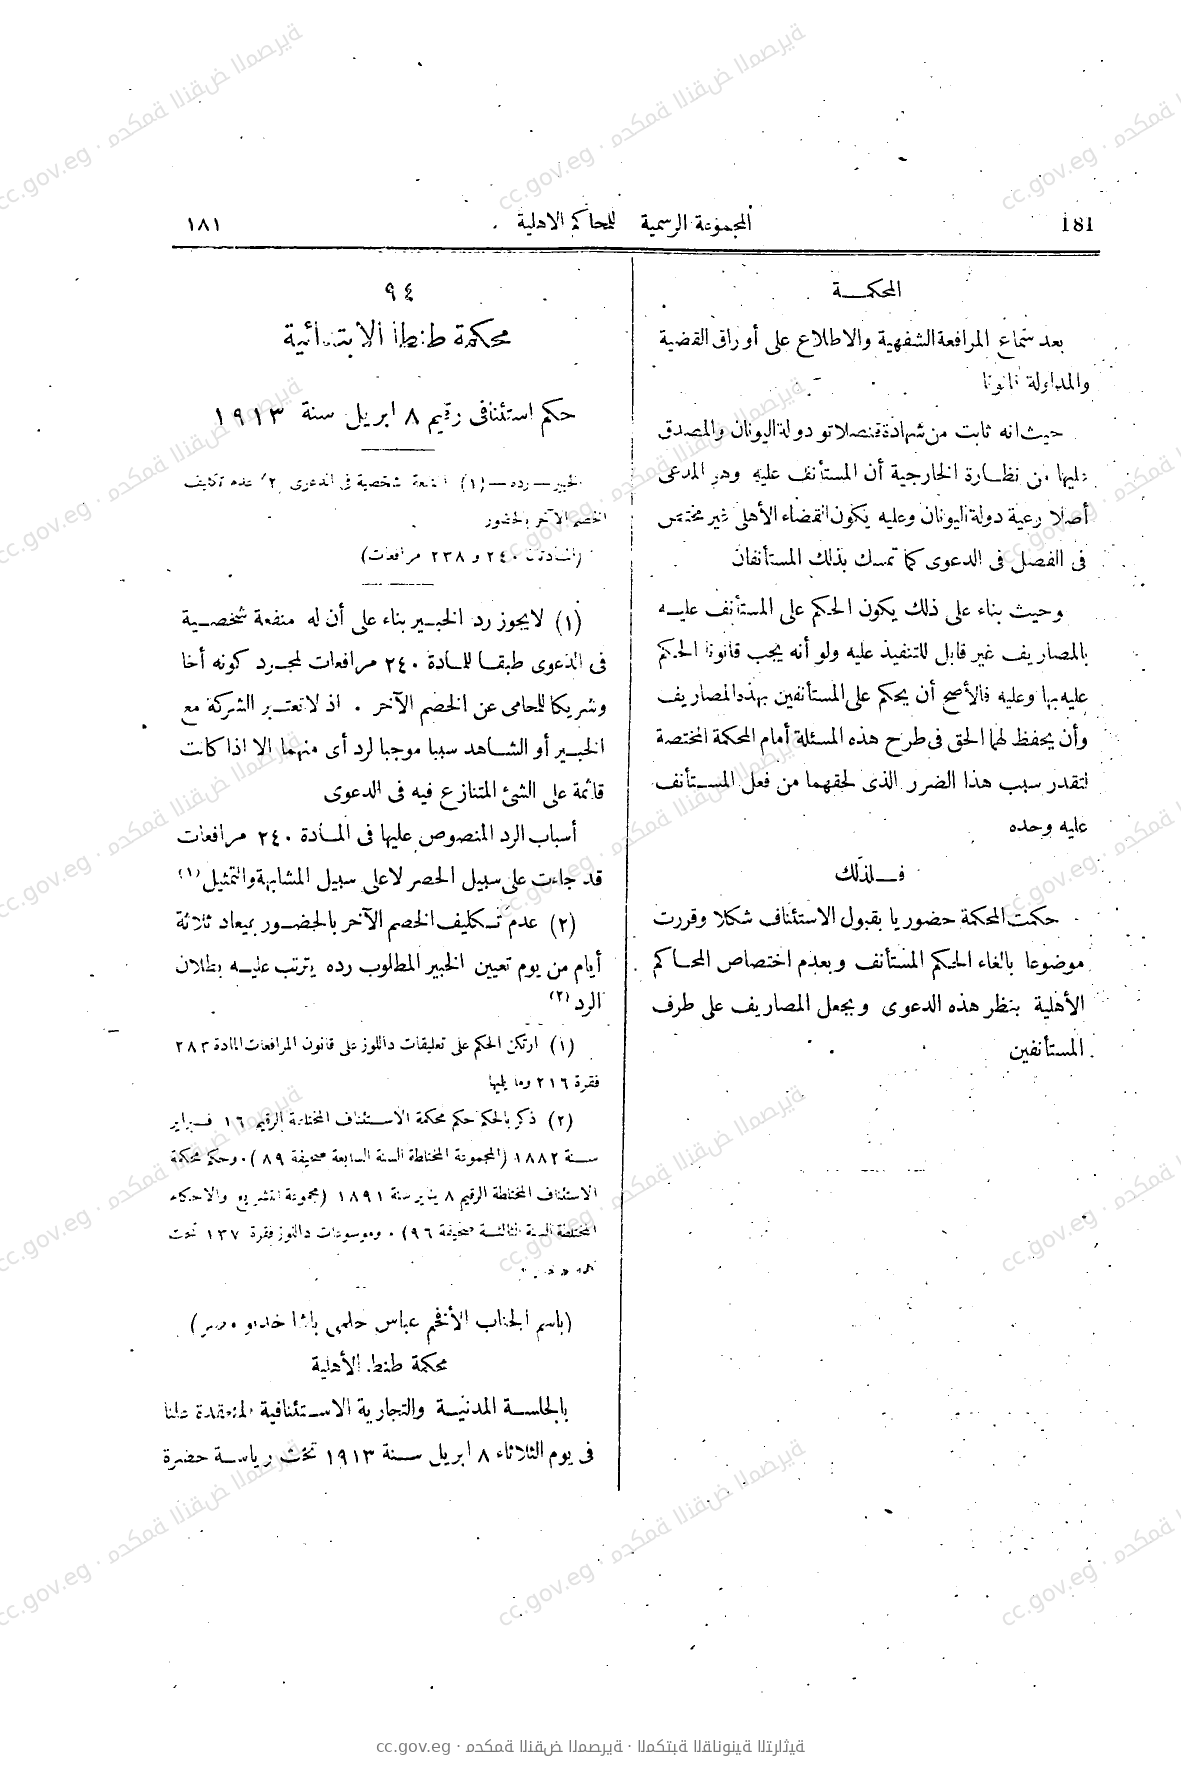 181 المجموعة الرسمية للمحاكم الاهلية ١٨١
المحكمة
بعد سماع المرافعة الشفهية والاطلاع على أوراق القضية
والمداولة قانونا
حيث انه ثابت من شهادة قنصلاتو دولة اليونان والمصدق
عليها من نظارة الخارجية أن المستأنف عليه وهو المدعى
أصلا رعية دولة اليونان وعليه يكون القضاء الأهلى غير مختص
فى الفصل فى الدعوى كما تمسك بذلك المستأنفان
وحيث بناء على ذلك يكون الحكم على المستأنف عليه
بالمصاريف غير قابل للتنفيذ عليه ولو أنه يجب قانونا الحكم
عليه بها وعليه فالأصح أن يحكم على المستأنفين بهذه المصاريف
وأن يحفظ لهما الحق فى طرح هذه المسئلة أمام المحكمة المختصة
لتقدر سبب هذا الضرر الذى لحقهما من فعل المستأنف
عليه وحده
فلذلك
حكمت المحكمة حضوريا بقبول الاستئناف شكلا وقررت
موضوعا بالغاء الحكم المستأنف وبعدم اختصاص المحاكم
الأهلية بنظر هذه الدعوى وبجعل المصاريف على طرف
المستأنفين
٩٤
محكمة طنطا الابتدائية
حكم استئنافى رقيم ٨ ابريل سنة ١٩١٣
الخبير — رده — (١) المنفعة شخصية فى الدعوى (٢) عدم تكليف
الخصم الآخر بالحضور
(المادتان ٢٤٠ و ٢٣٨ مرافعات)
(١) لا يجوز رد الخبير بناء على أن له منفعة شخصية
فى الدعوى طبقا للمادة ٢٤٠ مرافعات لمجرد كونه أخا
وشريكا للمحامى عن الخصم الآخر . اذ لا تعتبر الشركة مع
الخبير أو الشاهد سببا موجبا لرد أى منهما الا اذا كانت
قائمة على الشئ المتنازع فيه فى الدعوى
أسباب الرد المنصوص عليها فى المادة ٢٤٠ مرافعات
قد جاءت على سبيل الحصر لا على سبيل المشابهة والتمثيل (١)
(٢) عدم تكليف الخصم الآخر بالحضور بميعاد ثلاثة
أيام من يوم تعيين الخبير المطلوب رده يترتب عليه بطلان
الرد (٢)
(١) ارتكن الحكم على تعليقات داللوز على قانون المرافعات المادة ٢٨٣
فقرة ٢١٦ وما يليها
(٢) ذكر بالحكم حكم محكمة الاستئناف المختلطة الرقيم ١٦ فبراير
سنة ١٨٨٢ (المجموعة المختلطة السنة السابعة صحيفة ٨٩) . وحكم محكمة
الاستئناف المختلطة الرقيم ٨ يناير سنة ١٨٩١ (مجموعة التشريع والاحكام
المختلطة السنة الثالثة صحيفة ٩٦) . وموسوعات داللوز فقرة ١٣٧ تحت
كلمة
(باسم الجناب الأفخم عباس حلمى باشا خديو مصر)
محكمة طنطا الأهلية
بالجلسة المدنية والتجارية الاستئنافية المنعقدة علنا
فى يوم الثلاثاء ٨ ابريل سنة ١٩١٣ تحت رياسة حضرة
cc.gov.eg · محكمة النقض المصرية · المكتبة القانونية التراثية